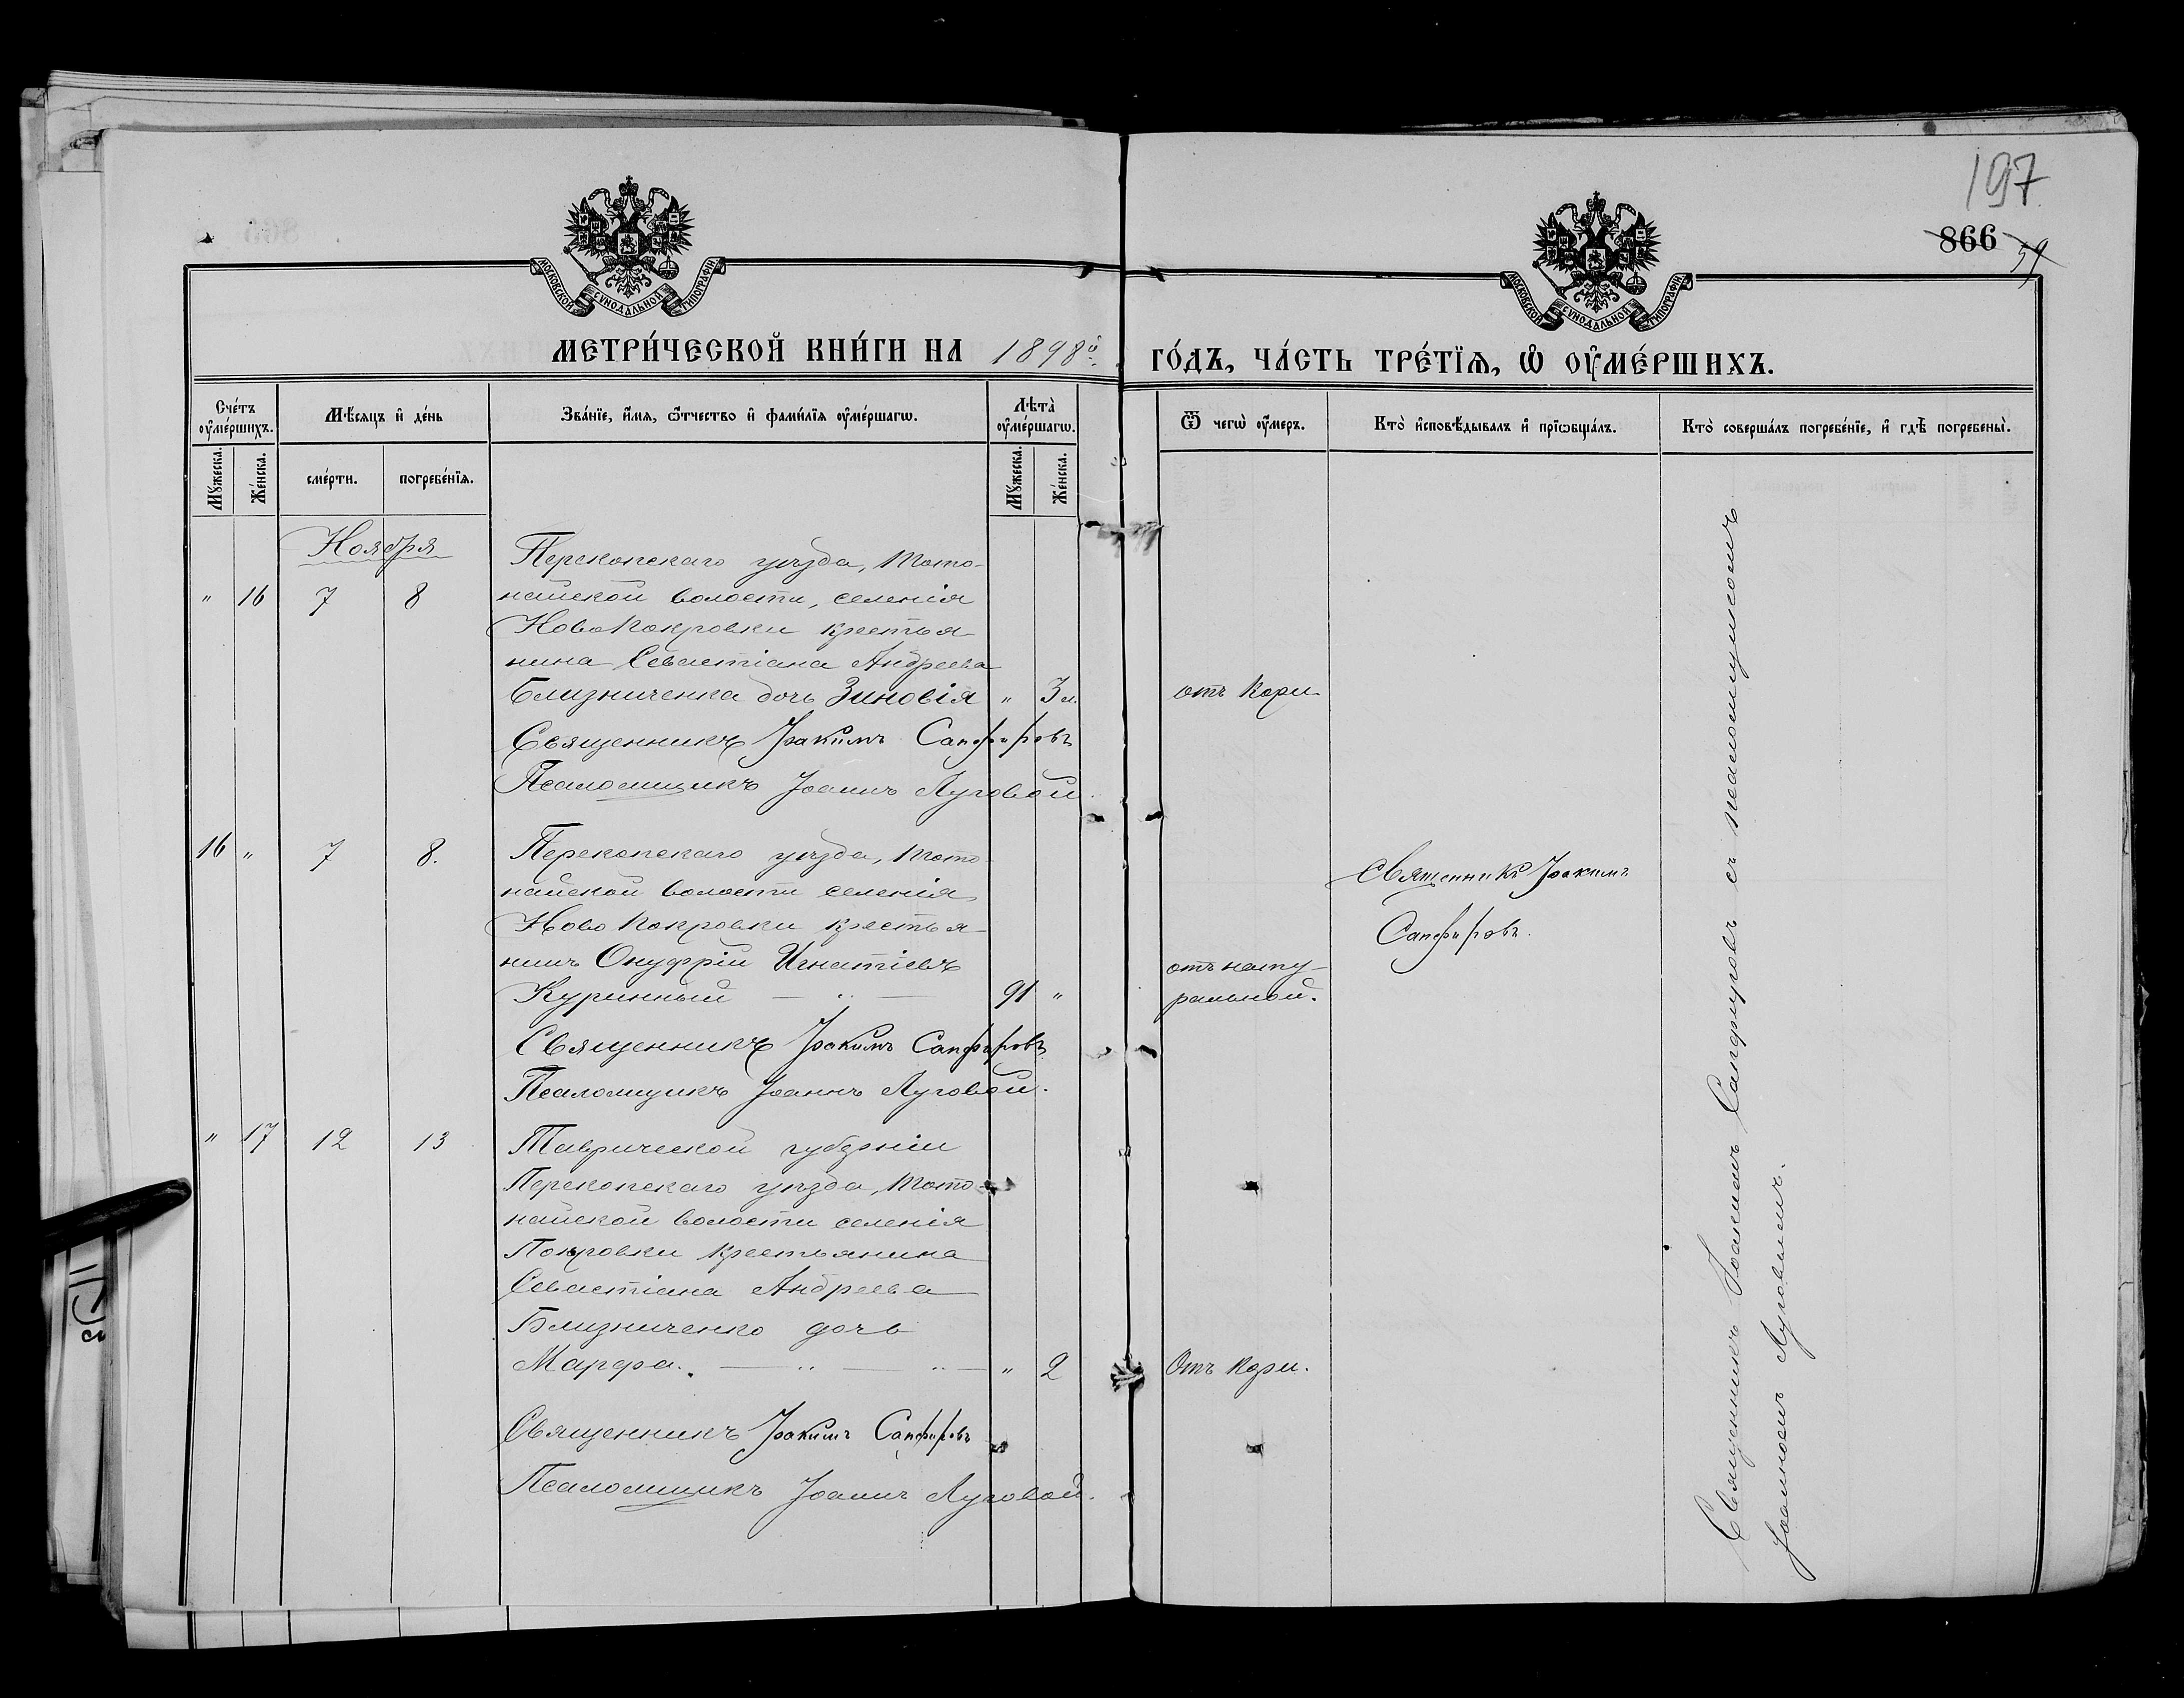 197
866 59
МОСКОВСКОЙ СѴНОДАЛЬНОЙ ТИПОГРАФІИ
МОСКОВСКОЙ СѴНОДАЛЬНОЙ ТИПОГРАФІИ
МЕТРИ́ЧЕСКОЙ КНИ́ГИ НА 1898й ГО́ДЪ, ЧА́СТЬ ТРЕ́ТЇѦ, Ѡ҆ ОУ҆МЕ́РШИХЪ.
Сче́тъ оу҆ме́ршихъ.
Мꙋжеска.
Же́нска.
Мѣ́сяцъ и҆ де́нь
сме́рти.
погребе́нїя.
Зва́нїе, и҆́мя, ѻ҆́тчество и҆ фами́лїя оу҆ме́ршагѡ.
Лѣта̀ оу҆ме́ршагѡ.
Мꙋжеска.
Же́нска.
Ѿ чегѡ̀ оу҆́меръ.
Кто̀ и҆сповѣ́дывалъ и҆ прїѡбща́лъ.
Кто̀ соверша́лъ погребе́нїе, и҆ гдѣ̀ погребены̀.
Ноября
" 16 7 8
Перекопскаго уѣзда, Тото-
найской волости, селенія
НовоПокровки крестья-
нина Севастіана Андреева
Близниченка дочь Зиновія " 3 л. отъ Кори
Священникъ Іоакимъ Сапфировъ
Псаломщикъ Іоаннъ Луговой.
16 " 7 8.
Перекопскаго уѣзда, Тото-
найской волости селенія
Ново Покровки крестья-
нинъ Онуфрій Игнатіевъ
Куринный — " — 91 " отъ нату-
ральной.
Священникъ Іоакимъ
Сапфировъ.
Священникъ Іоакимъ Сапфировъ
Псаломщикъ Іоаннъ Луговой.
" 17 12 13
Таврической губерніи
Перекопскаго уѣзда, Тото-
найской волости селенія
Покровки крестьянина
Севастіана Андреева
Близниченко дочь
Марфа. — " — " — " 2 Отъ Кори.
Священникъ Іоакимъ Сапфировъ
Псаломщикъ Іоаннъ Луговой.
Священникъ Іоакимъ Сапфировъ съ псаломщикомъ
Іоанномъ Луговымъ.